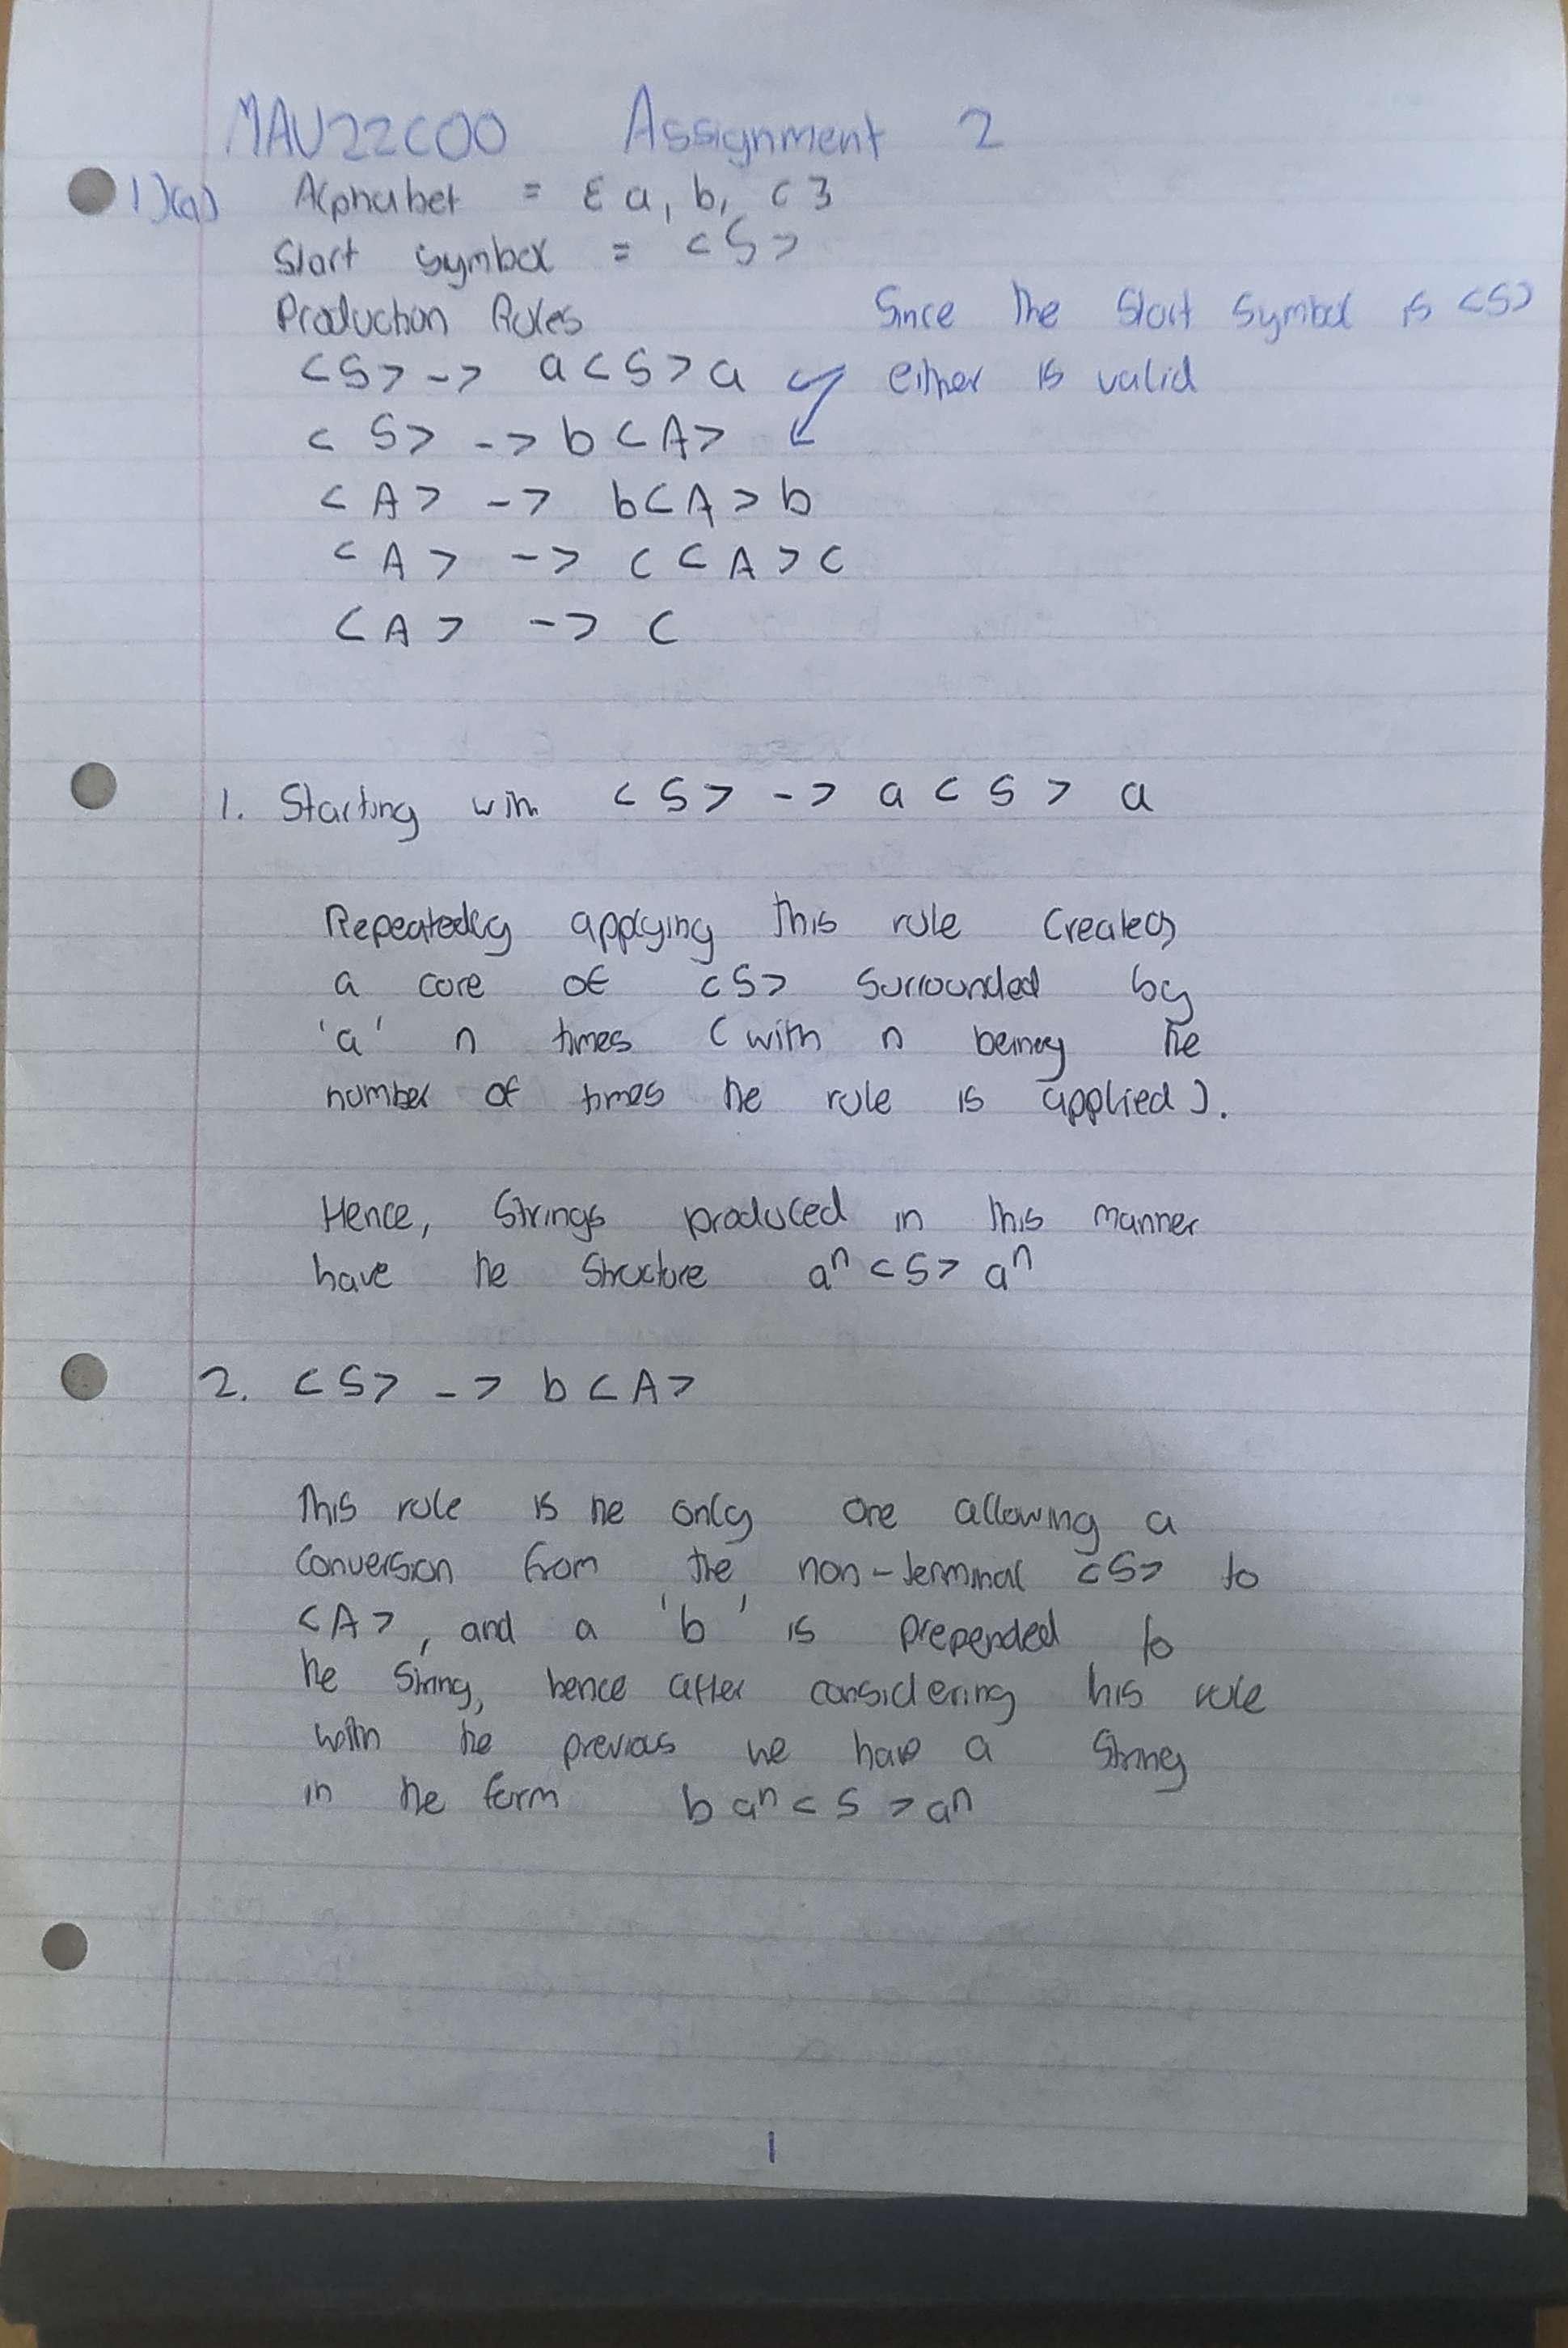 MAU22C00 Assignment 2
1)(a) Alphabet = { a, b, c }
Start symbol = <S>
Production Rules
Since the start symbol is <S>
<S> -> a<S>a
either is valid
<S> -> b<A>
<A> -> b<A>b
<A> -> c<A>c
<A> -> c
1. Starting with <S> -> a<S>a
Repeatedly applying this rule creates
a core of <S> surrounded by
'a' n times (with n being the
number of times the rule is applied).
Hence, strings produced in this manner
have the structure aⁿ<S>aⁿ
2. <S> -> b<A>
This rule is the only one allowing a
conversion from the non-terminal <S> to
<A>, and a 'b' is prepended to
the string, hence after considering this rule
with the previous we have a string
in the form baⁿ<S>aⁿ
1